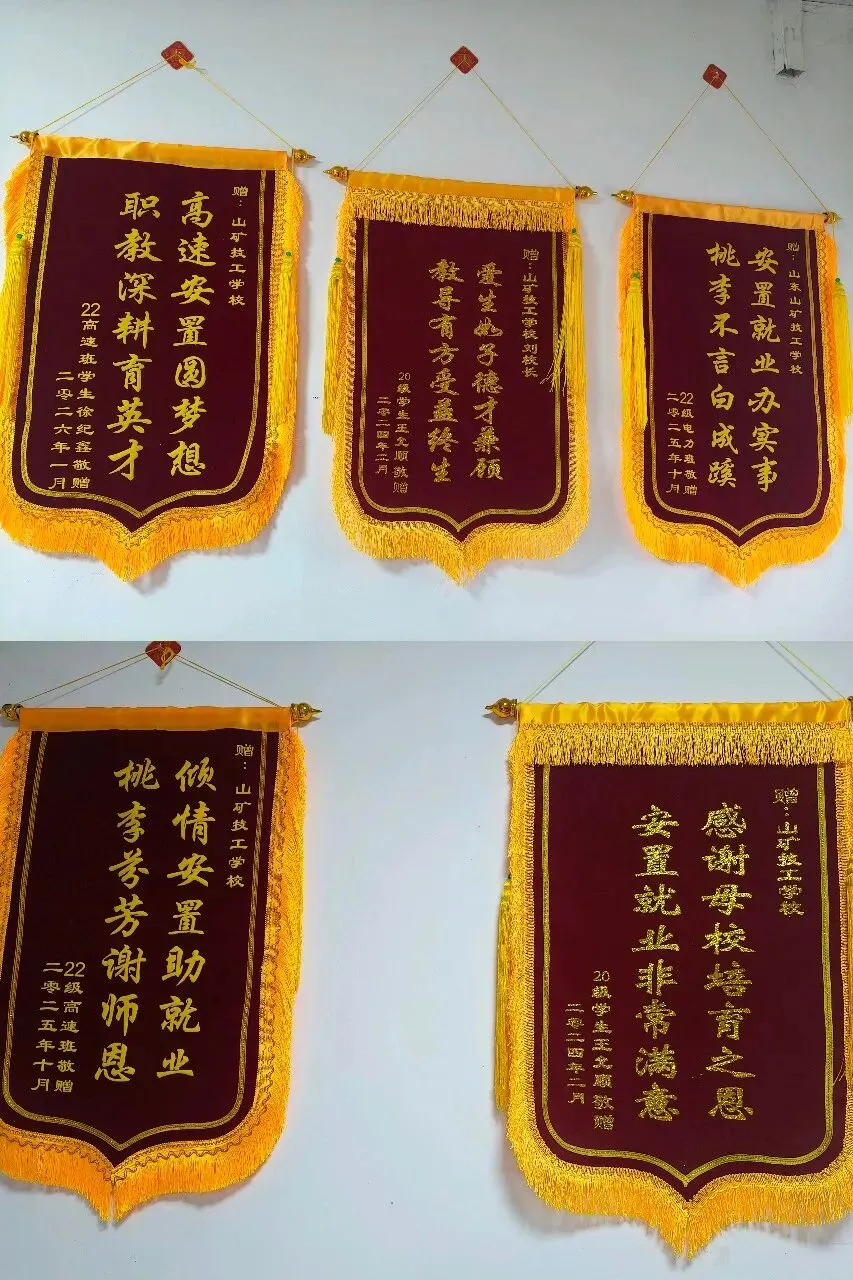 赠：山矿技工学校
高速安置圆梦想
职教深耕育英才
22高速班学生徐纪鑫敬赠
二零二六年一月
赠：山矿技工学校刘校长
爱生如子德才兼顾
教导有方受益终生
20级学生王允顺敬赠
二零二四年二月
赠：山东山矿技工学校
安置就业办实事
桃李不言自成蹊
22级电力班敬赠
二零二五年十月
赠：山矿技工学校
倾情安置助就业
桃李芬芳谢师恩
22级高速班敬赠
二零二五年十月
赠：山矿技工学校
感谢母校培育之恩
安置就业非常满意
20级学生王允顺敬赠
二零二四年二月